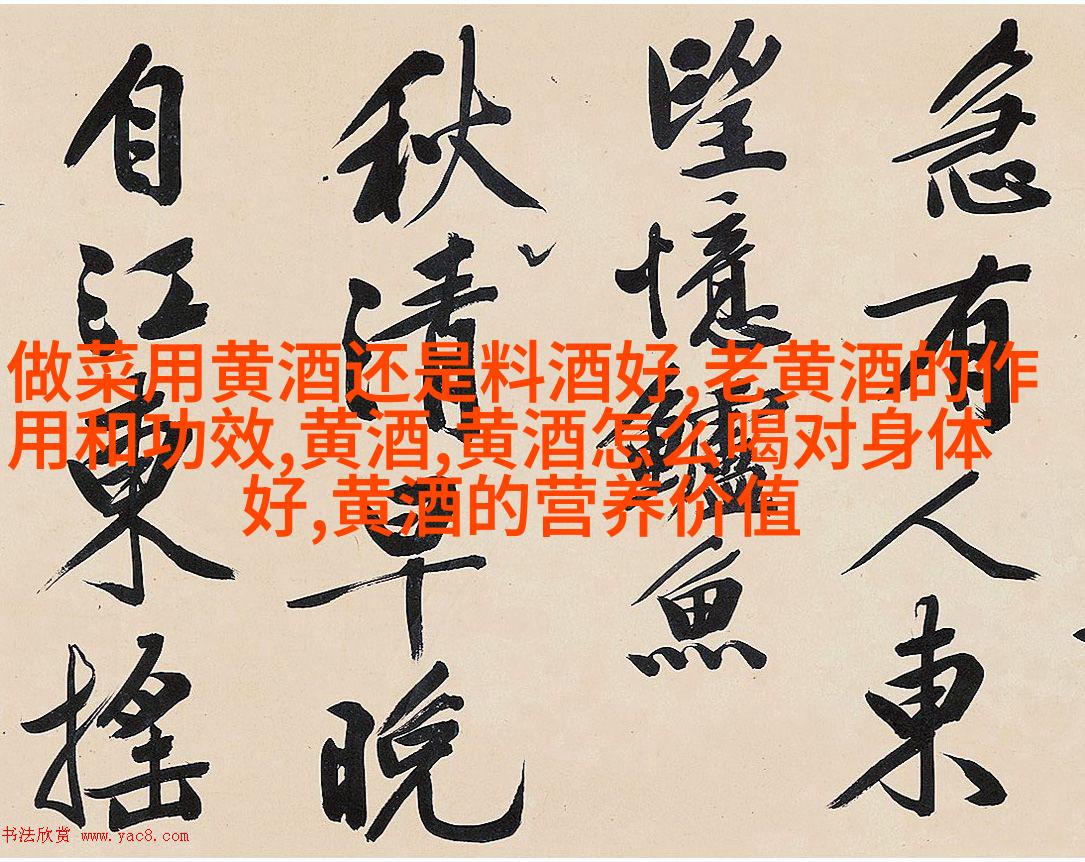 急有人東
望憶鱸魚
秋清早晚
自江東搖
做菜用黄酒还是料酒好,老黄酒的作
用和功效,黄酒,黄酒怎么喝对身体
好,黄酒的营养价值
书法欣赏 www.yac8.com